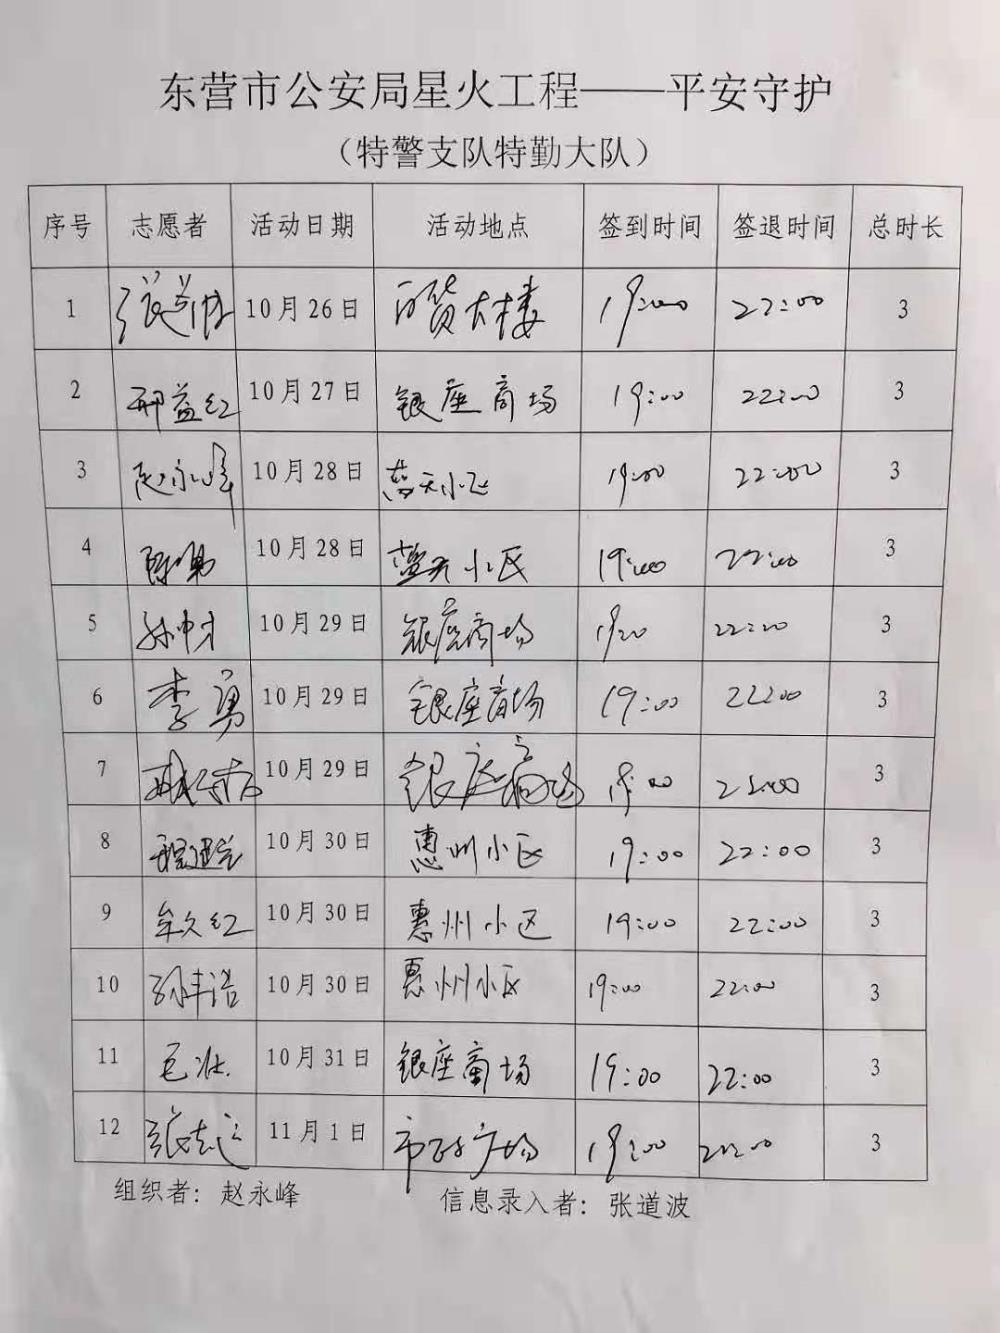 东营市公安局星火工程——平安守护
（特警支队特勤大队）
序号 志愿者 活动日期 活动地点 签到时间 签退时间 总时长
1 10月26日 百货大楼 19:00 22:00 3
2 邢益红 10月27日 银座商场 19:00 22:00 3
3 赵永峰 10月28日 蓝天小区 19:00 22:00 3
4 陈勇 10月28日 蓝天小区 19:00 22:00 3
5 孙中才 10月29日 银座商场 19:00 22:00 3
6 李勇 10月29日 银座商场 19:00 22:00 3
7 10月29日 银座商场 19:00 22:00 3
8 10月30日 惠州小区 19:00 22:00 3
9 牟久红 10月30日 惠州小区 19:00 22:00 3
10 孙丰浩 10月30日 惠州小区 19:00 22:00 3
11 毛壮 10月31日 银座商场 19:00 22:00 3
12 张志远 11月1日 市政广场 19:00 22:00 3
组织者：赵永峰 信息录入者：张道波